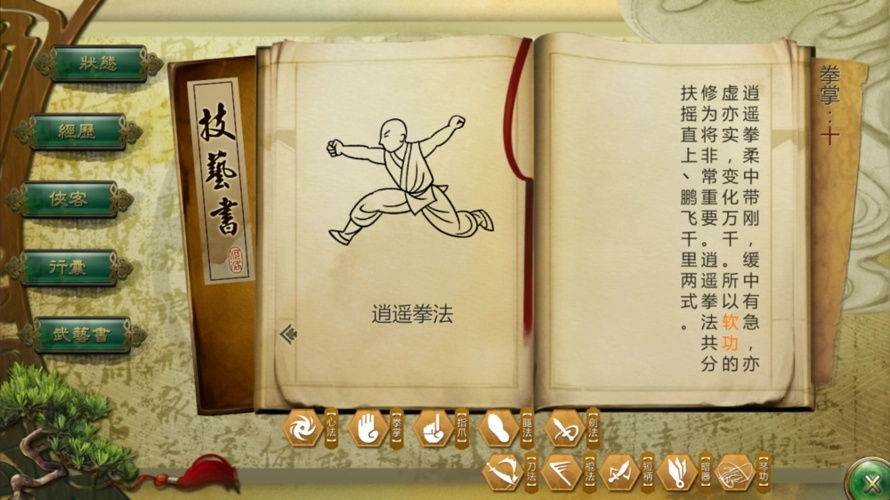 狀態
經歷
俠客
行囊
武藝書
技藝書
逍遥拳法
拳掌：十
逍遥拳柔中带刚，缓中有急，亦
虚亦实，变化万千。所以软功的
修为将非常重要。逍遥拳法共分
扶摇直上、鹏飞千里两式。
【心法】
【拳掌】
【指爪】
【腿法】
【剑法】
【刀法】
【棍法】
【短柄】
【暗器】
【琴功】